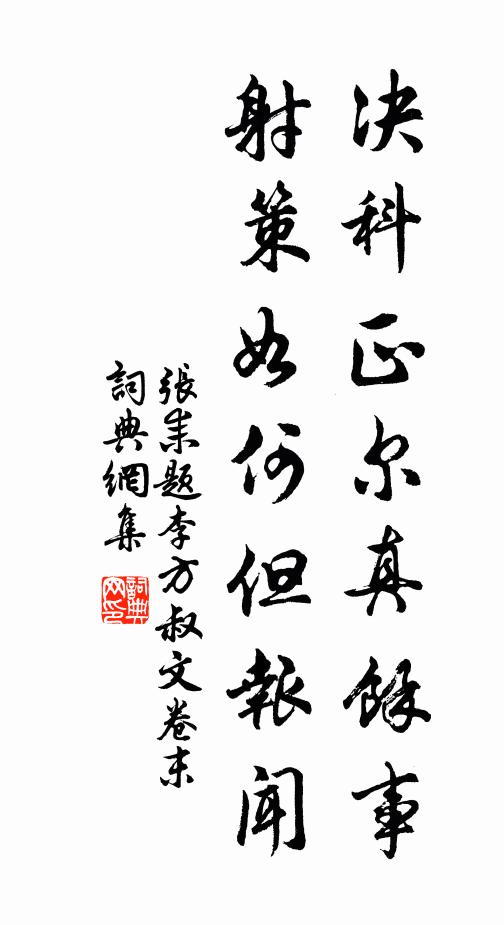 决科正尔真馀事
射策如何但报闻
張耒题李方叔文卷末
詞典網集
詞典網印